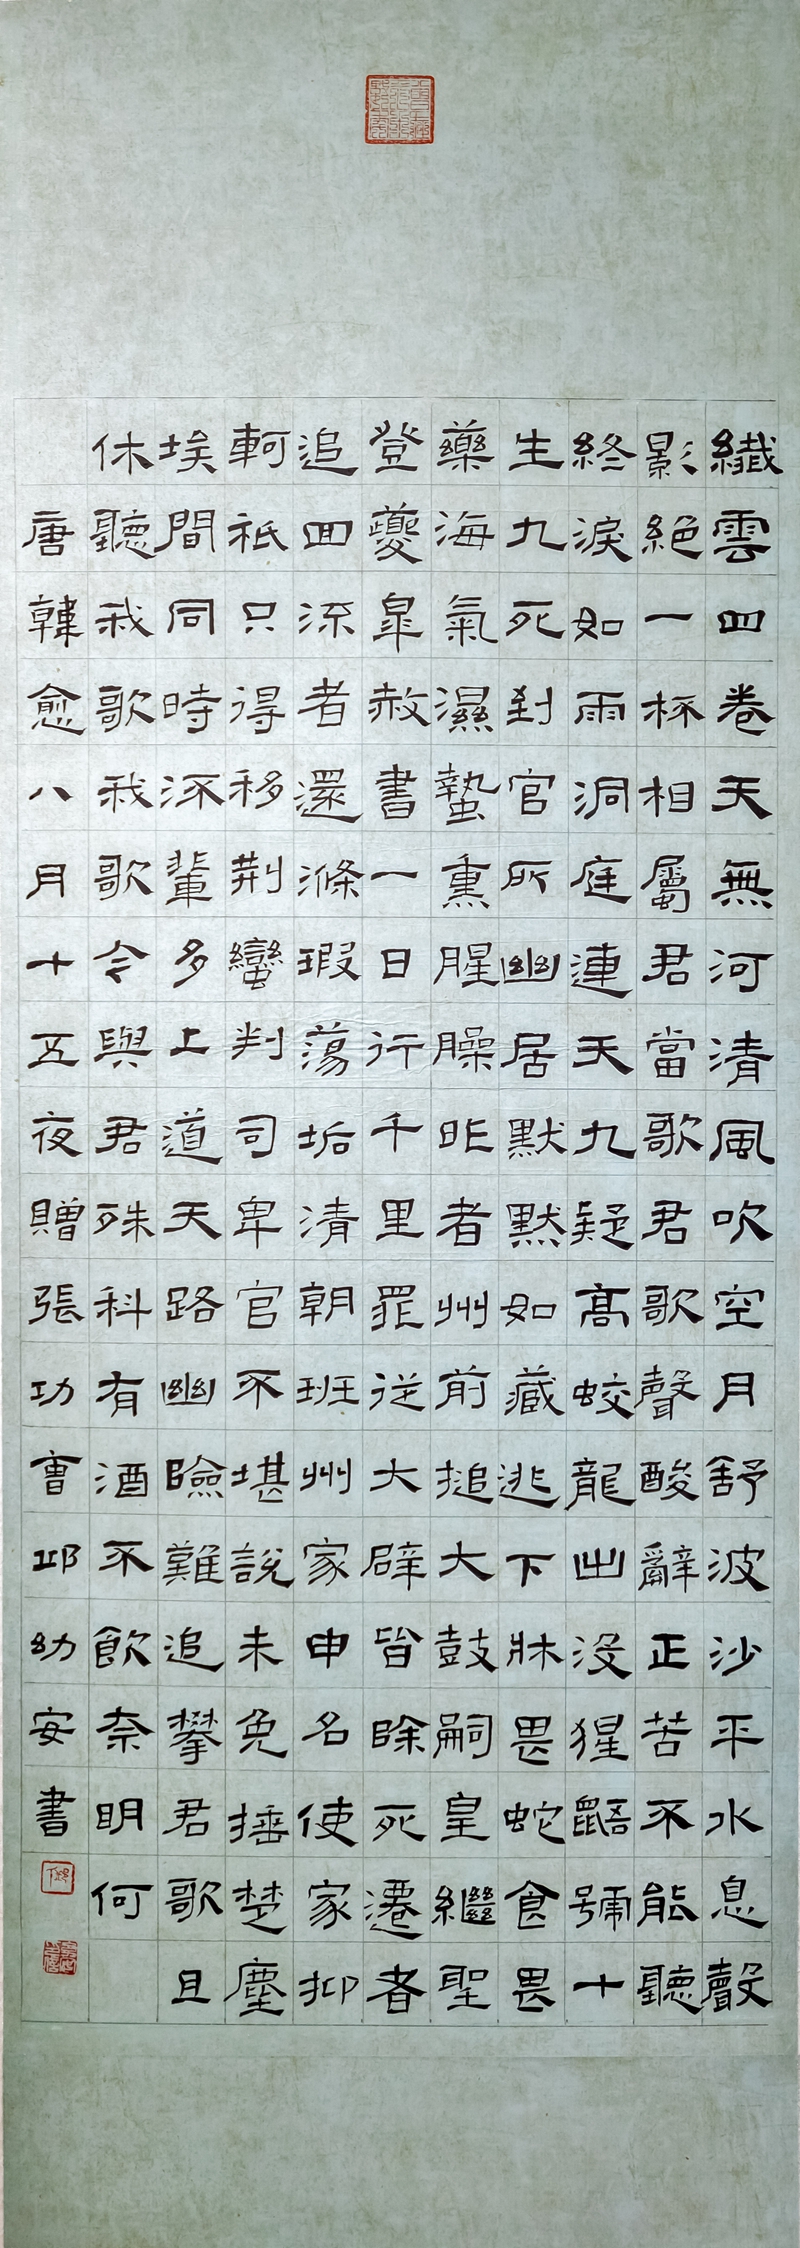 纖雲四卷天無河清風吹空月舒波沙平水息聲
影絕一杯相屬君當歌君歌聲酸辭正苦不能聽
終淚如雨洞庭連天九疑高蛟龍出沒猩鼯號十
生九死到官所幽居默默如藏逃下牀畏蛇食畏
藥海氣濕蟄熏腥臊昨者州前搥大鼓嗣皇繼聖
登夔皋赦書一日行千里罪從大辟皆除死遷者
追回流者還滌瑕蕩垢清朝班州家申名使家抑
軻祇只得移荊蠻判司卑官不堪說未免捶楚塵
埃間同時流輩多上道天路幽險難追攀君歌且
休聽我歌我歌今與君殊科有酒不飲奈明何
唐韓愈八月十五夜贈張功曹邱幼安書